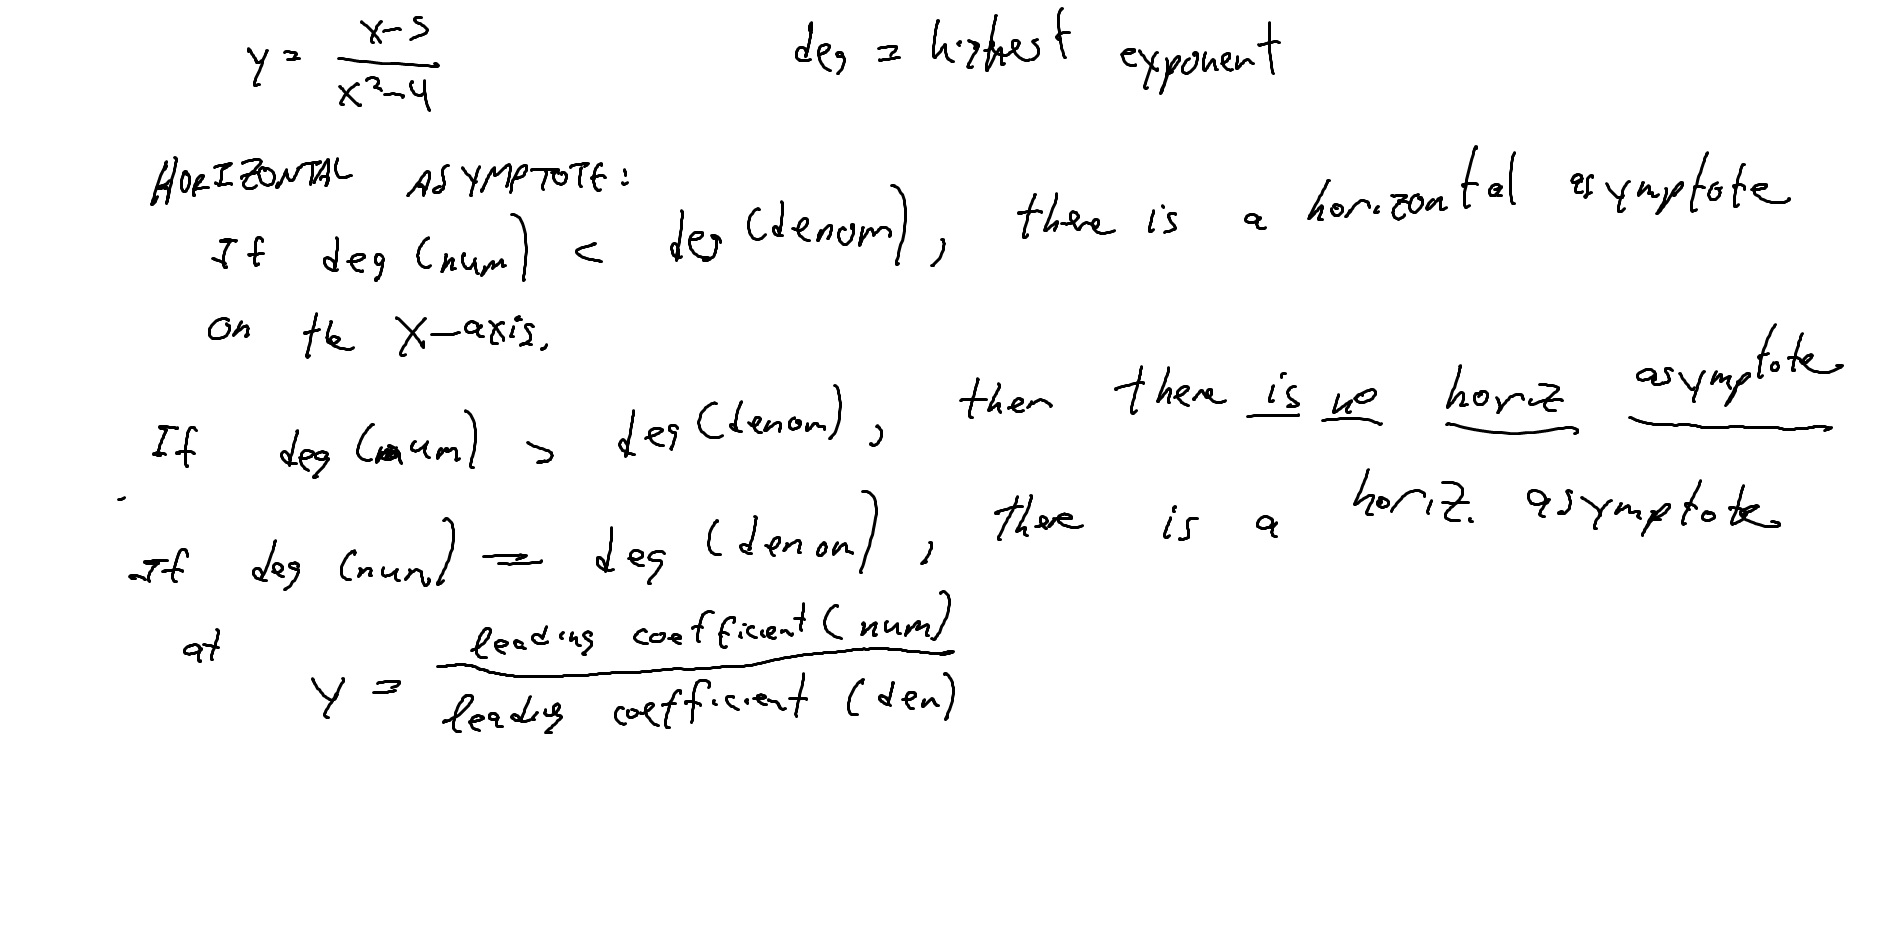 y = (x-5)/(x²-4) deg = highest exponent
HORIZONTAL ASYMPTOTE:
If deg (num) < deg (denom), there is a horizontal asymptote
on the x-axis.
If deg (num) > deg (denom), then there is no horiz asymptote
If deg (num) = deg (denom), there is a horiz. asymptote
at y = leading coefficient (num) / leading coefficient (den)